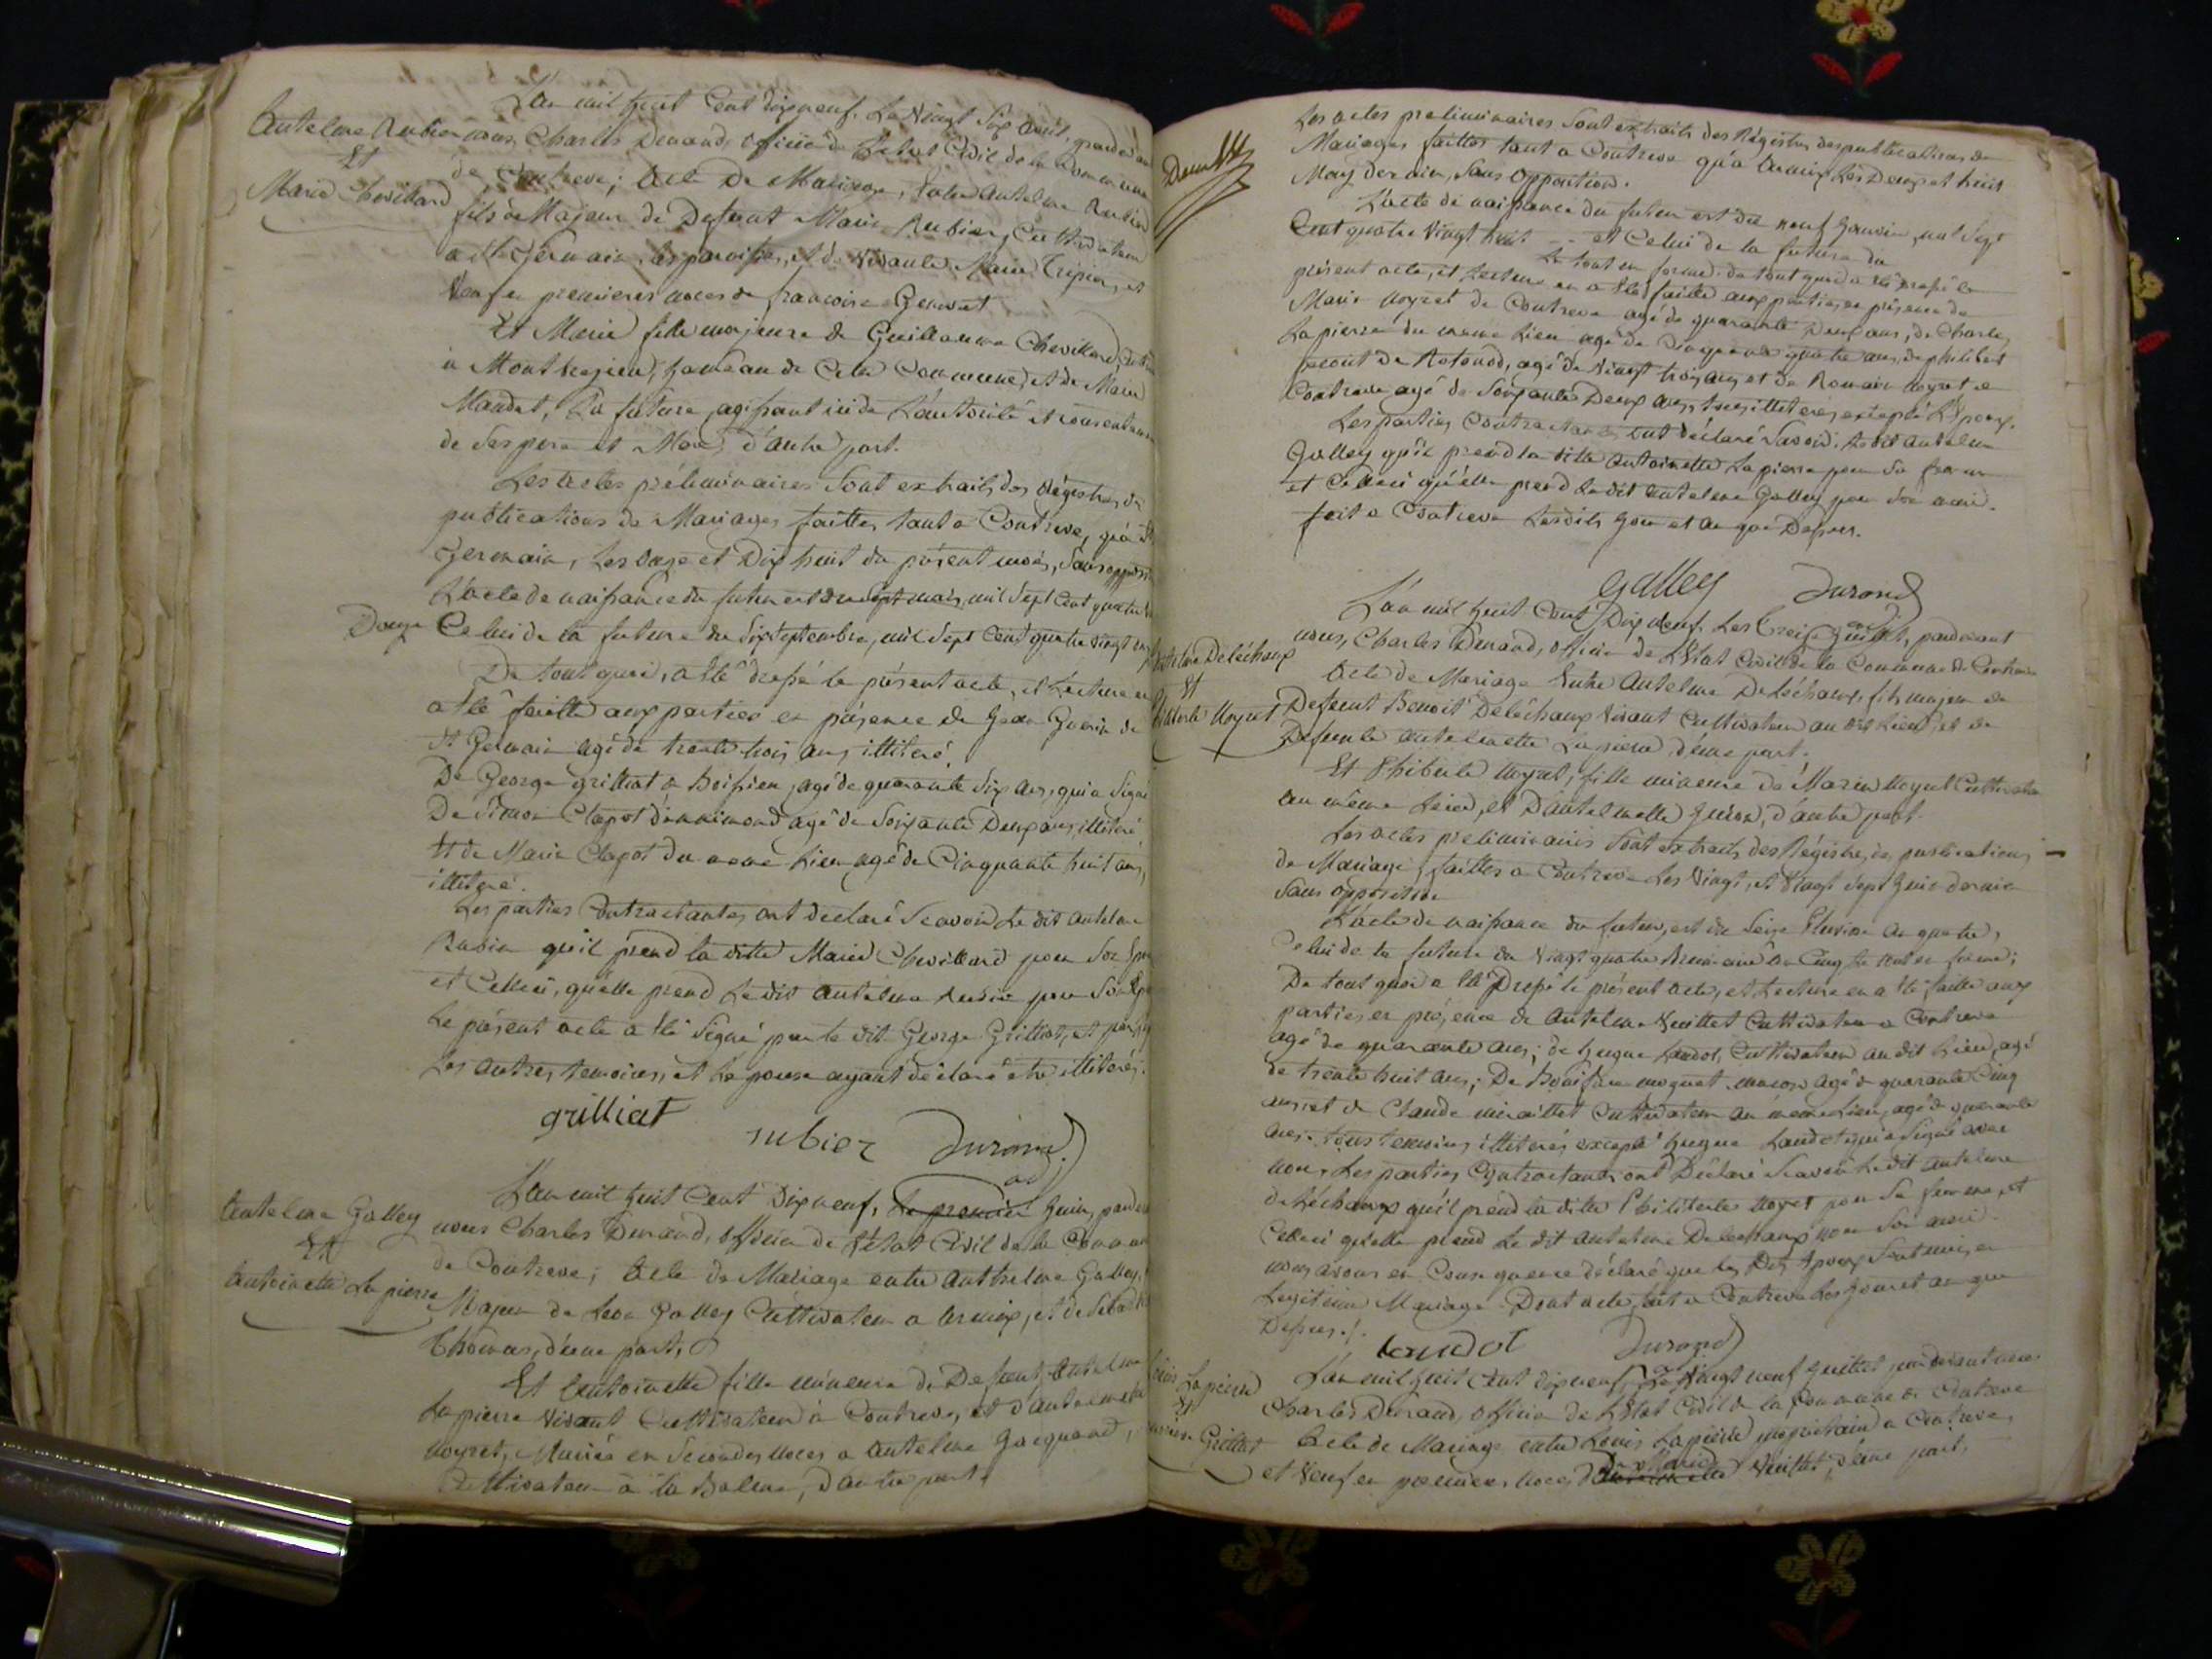 L'an mil huit Cent dix neuf. Le Vingt Six avril, pardevant
Antelme Rubier nous, Charles Durand, officier de L'état Civil de la Commune
Et
de Contrevoz; Acte de Mariage, Entre Antelme Rubier
Marie Chevillard
fils Majeur de Defunt Marin Rubier, Cultivateur
a St Germain les paroisses, et de Vivante Marie Tripier, et
Veuf en premieres noces de francoise
Et Marie fille majeure de Guillaume Chevillard,
a hameau de Cette Commune, et de Marie
Mandot, La future agissant de L'autorité et consentement
de Ses pere et Mere, d'autre part.
Les actes préliminaires Sont extraits des Régistres de
publications de Mariages faittes tant a Contrevoz, qu'a St
Germain, Les onze et Dix huit du présent mois, Sans opposition
L'acte de naissance du futur est du Sept mars, mil Sept Cent quatre
Celui de la future du Six Septembre, mil Sept Cent quatre Vingt
De tout quoi, a été dressé le présent acte, et Lecture en
a été faitte aux parties en présence de Jean Guerin de
St Germain agé de trente trois ans illiteré,
De George grilliat a agé de quarante Six ans, qui a Signé
De Simon Clapot d'ennimond agé de Soixante Deux ans, illiteré
Et de Marin Clapot du meme Lieu agé de Cinquante huit ans,
illiteré.
Les parties Contractantes ont déclaré Scavoir Le dit Antelme
Rubier qu'il prend la ditte Marie Chevillard pour Son
et Celleci, qu'elle prend Le dit Antelme Rubier pour Son
Le présent acte a été Signé par le dit George Grilliat, et
Les Autres temoins, et L'epouse ayant déclaré etre illiterés.
grilliat
rubier Durand
L'an mil huit Cent Dix neuf, Le premier Juin, pardevant
Antelme Galley
nous Charles Durand, officier de L'état Civil de la Commune
Et
de Contrevoz; Acte de Mariage entre Anthelme Galley,
Antoinette Lapierre
Majeur de Galley Cultivateur a armix, et de
Thomas, d'une part,
Et Antoinette fille mineure de Defunt Antelme
Lapierre Vivant Cultivateur à Contrevoz, et d'Antelmette
noyret, Mariée en Secondes noces a Antelme Jacquand,
Cultivateur à la Balme, d'autre part.
Les actes preliminaires Sont extraits des Régistres des publications de
Mariages faittes tant a Contrevoz qu'a armix Les Deux et huit
May dernier, Sans opposition.
L'acte de naissance du futur est du neuf Janvier mil Sept
Cent quatre Vingt huit et Celui de la future du
Le tout en forme. de tout quoi a été dressé le
présent acte, et Lecture en a été faitte aux parties, en présence de
Marin noyret de Contrevoz agé de quarante Deux ans, de Charles
Lapierre du meme Lieu agé de Cinquante quatre ans, de philibert
de Rotonod, agé de Vingt trois ans et de Romain noyret de
Contrevoz agé de Soixante Deux ans, tous illiterés excepté L'epoux.
Les parties Contractantes ont déclaré Savoir. Le dit Antelme
Galley qu'il prend la ditte Antoinette Lapierre pour Sa femme
et Celleci qu'elle prend Le dit Antelme Galley pour Son mari.
fait a Contrevoz Lesdits Jour et an que Dessus.
Galley Durand
L'an mil huit Cent Dix neuf, Les Treize Juillet, pardevant
nous, Charles Durand, officier de L'état Civil de la Commune de Contrevoz
Antelme Deléchamp
Acte de Mariage Entre Antelme Deléchamp, fils majeur de
Et
Defunt Benoit Deléchamp Vivant Cultivateur au dit Lieu, et de
Philiberte Noyret
Defunte Antelmette Lapierre d'une part;
Et Philiberte Noyret, fille mineure de Marin Noyret Cultivateur
au même Lieu, et D'Antelmette Guerin, d'autre part.
Les actes preliminaires Sont extraits des Régistres de publications
de Mariage, faittes a Contrevoz Les Vingt, et Vingt Sept Juin dernier
Sans opposition
L'acte de naissance du futur, est du Seize Pluviose an quatre,
Celui de la future du Vingt quatre Brumaire an Cinq Le tout en forme;
De tout quoi a été Dressé le présent acte, et Lecture en a été faitte aux
parties en présence de Antelme Vuillet Cultivateur a Contrevoz
agé de quarante ans; de hugue Landot, Cultivateur au dit Lieu, agé
de trente huit ans; De maçon agé de quarante Cinq
ans et de Claude Cultivateur au meme Lieu, agé de quarante
ans. tous temoins illiterés excepté hugue Landot qui a Signé avec
nous, Les parties Contractantes ont Déclaré Scavoir Le dit Antelme
Deléchamp qu'il prend la ditte Philiberte Noyret pour Sa femme, et
Celleci qu'elle prend Le dit Antelme Delechamp pour Son mari.
nous avons en Consequence déclaré que les Dits Epoux Sont unis en
Legitime Mariage. Dont acte, fait a Contrevoz Les Jour et an que
Dessus./.
Landot Durand
L'an mil huit Cent dix neuf, Le Vingt neuf Juillet, pardevant nous
Louis Lapierre
Et
Charles Durand, officier de L'état Civil de la Commune de Contrevoz
Grilliat Acte de Mariage entre Louis Lapierre proprietaire a Contrevoz,
et Veuf en premieres noces de Marie Vuillet, d'une part,